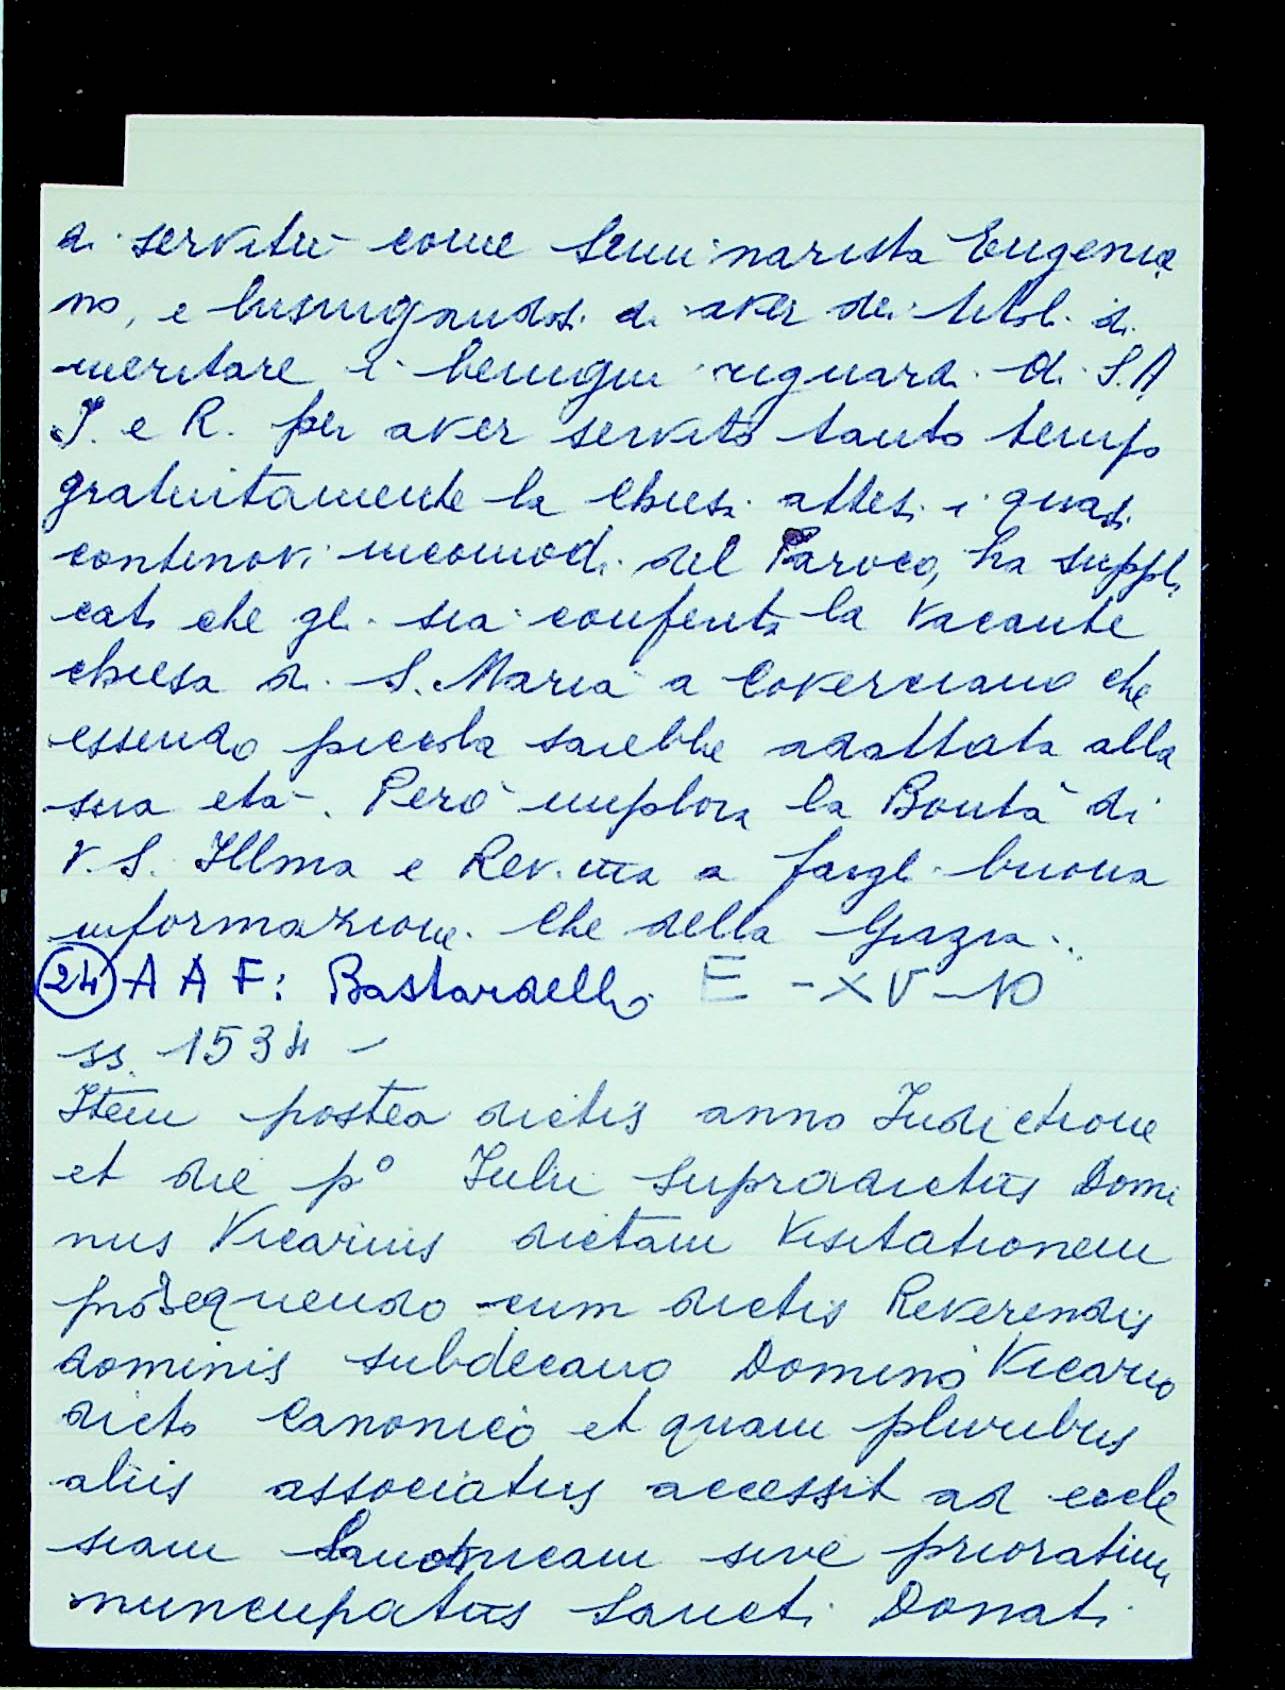 di servitù come Seminarista Eugenia
no, e lusingandosi di aver dei titoli di
meritare i benigni riguardi di S.A
I. e R. per aver servito tanto tempo
gratuitamente la Chiesa attesi i quasi
continovi incomodi del Paroco, ha suppli
cato che gli sia conferita la vacante
chiesa di S. Maria a Coverciano che
essendo piccola sarebbe adattata alla
sua età. Però implora la Bontà di
V.S. Illma e Rev.ma a fargli buona
informazione. Che della Grazia..
24 A A F: Bastardello E - XV - 10
ss. 1534 -
Item postea dictis anno Indictione
et die p.º Iulii supradictus Domi
nus Vicarius dictam visitationem
prosequendo cum dictis Reverendis
dominis subdecano Domino Vicario
dicto Canonico et quam pluribus
aliis associatus accessit ad eccle
siam sive prioratum
nuncupatus Sancti Donati